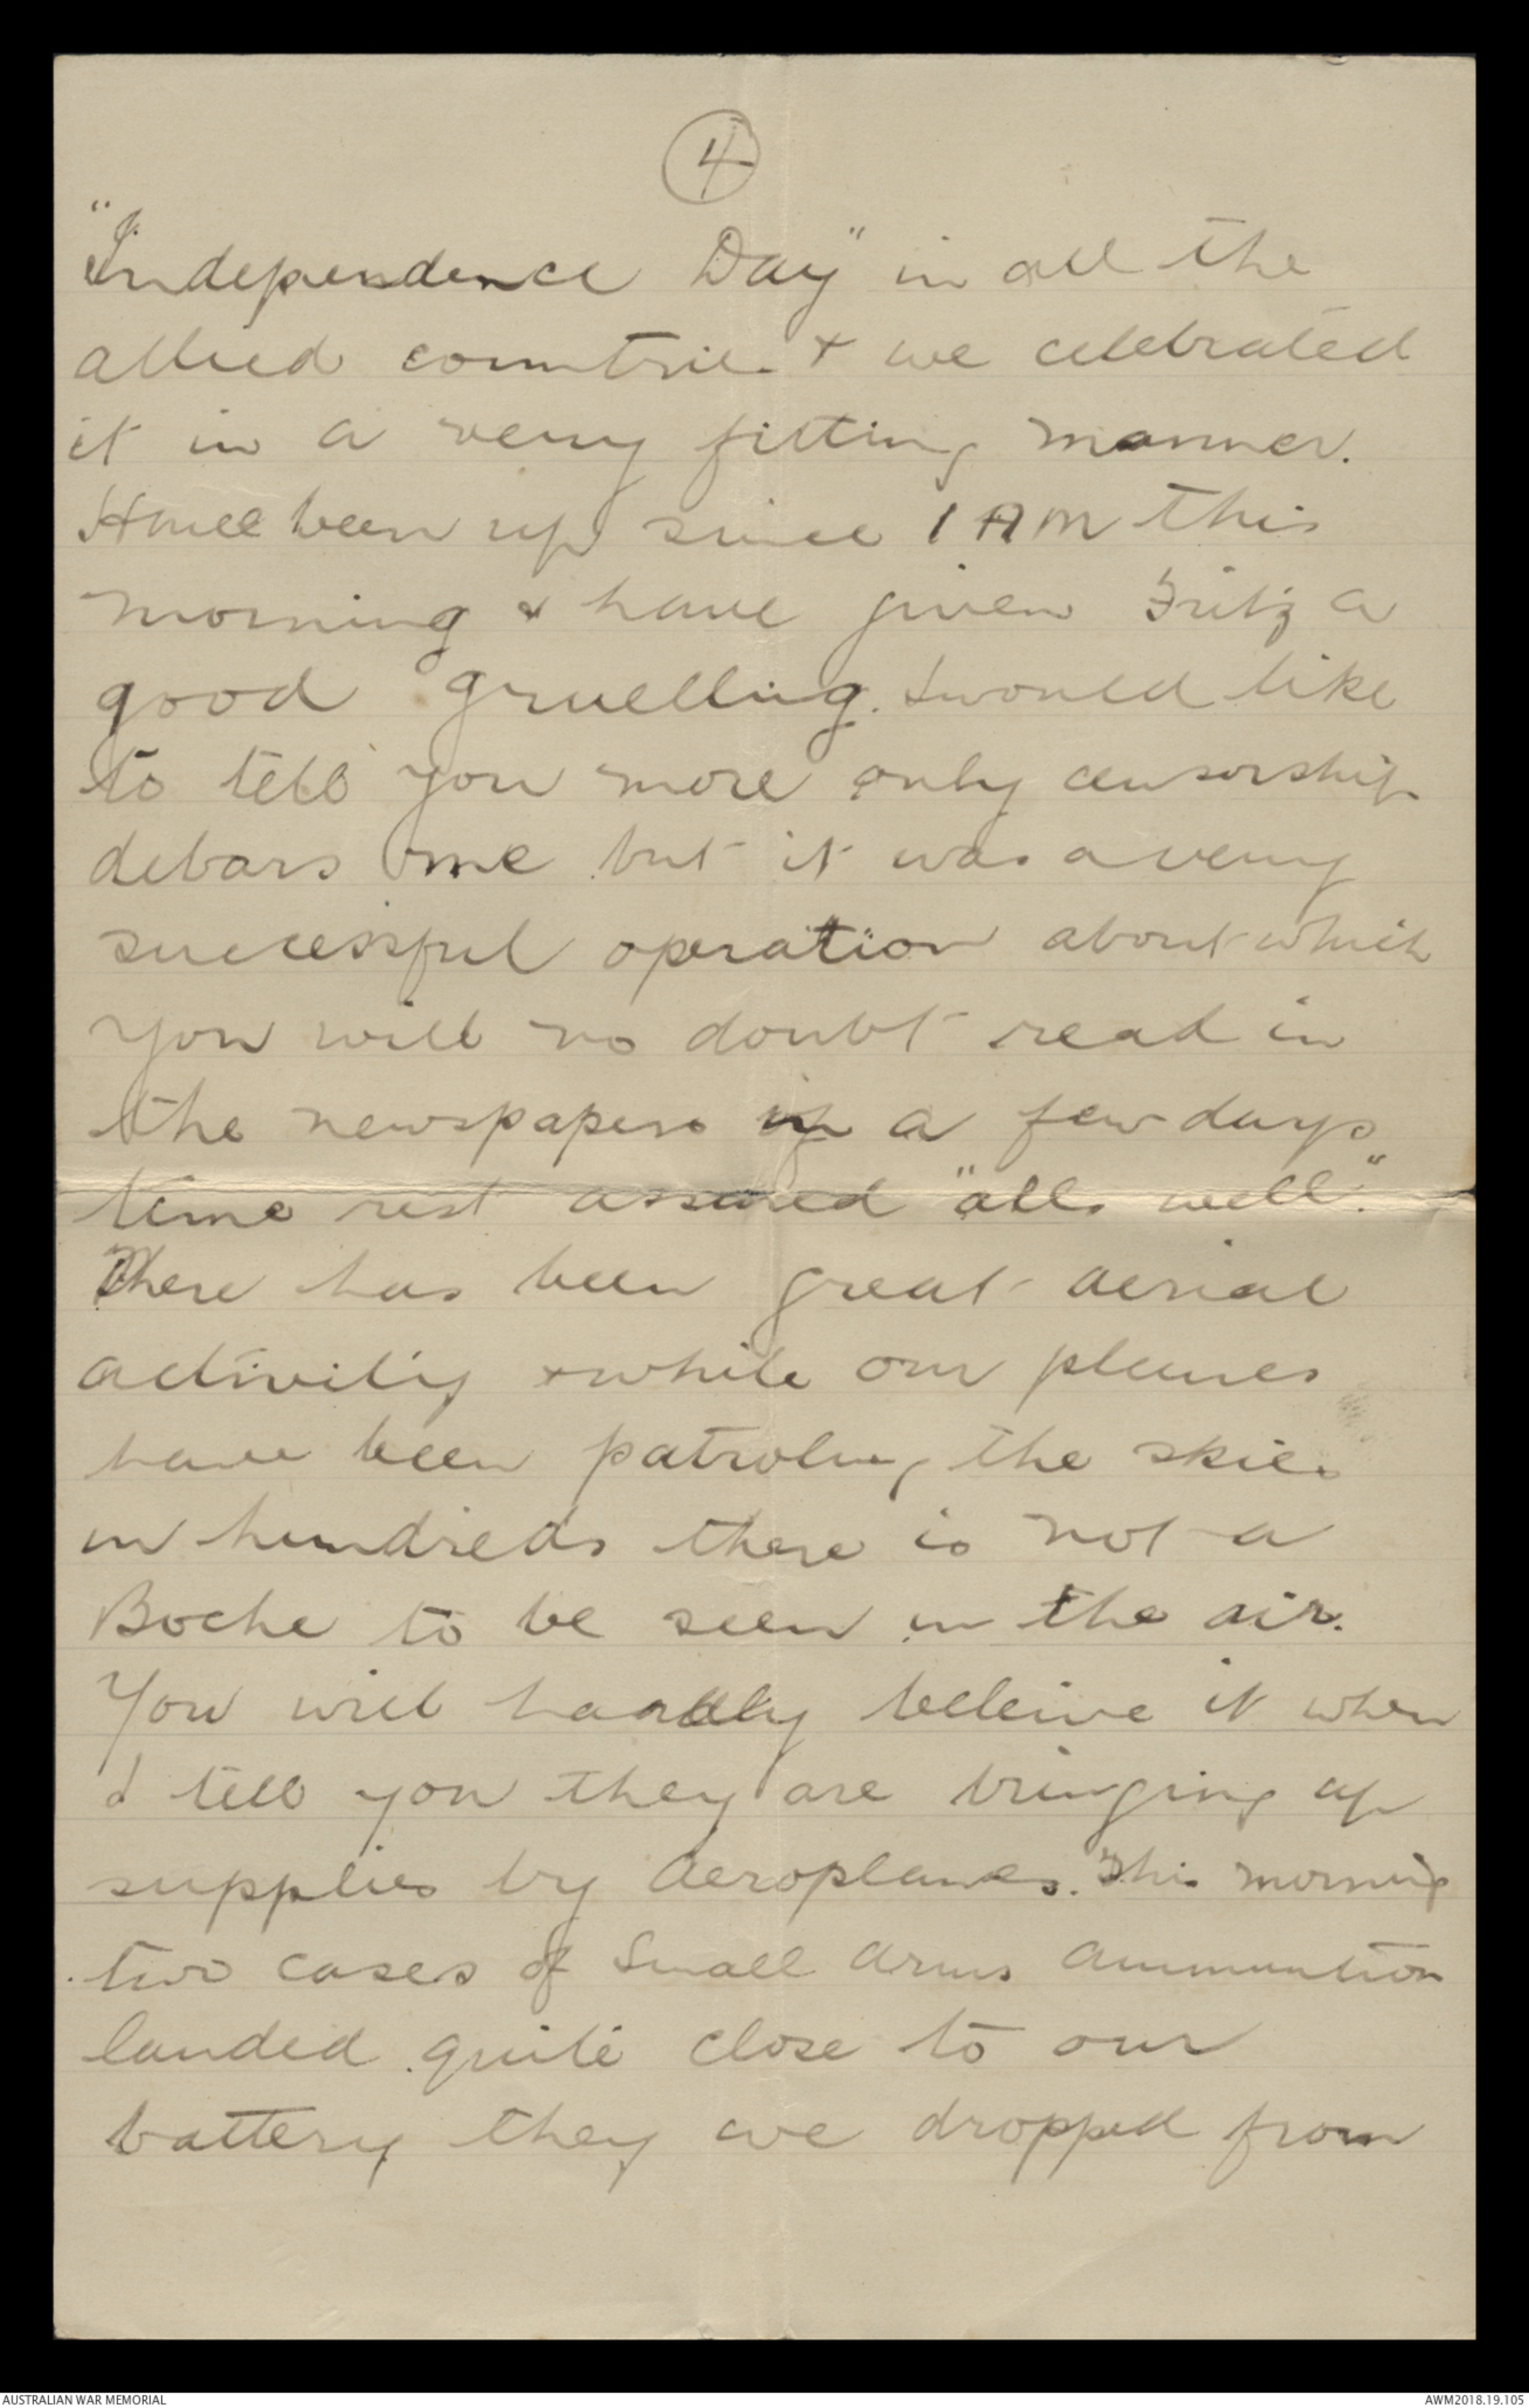 4
"Independence Day" in all the
allied countries + we celebrated
it in a very fitting manner.
Have been up since 1 AM this
morning & have given Fritz a
good gruelling. I would like
to tell you more only censorship
debars me but it was a very
successful operation about which
you will no doubt read in
the newspapers in a few days
time rest assured "alls well."
There has been great aerial
activity + while our planes
have been patroling the skies
in hundreds there is not a
Boche to be seen in the air.
You will hardly beleive it when
I tell you they are bringing up
supplies by Aeroplanes. This morning
two cases of Small Arms Ammuntion
landed quite close to our
battery they are dropped from
AUSTRALIAN WAR MEMORIAL
AWM2018.19.105